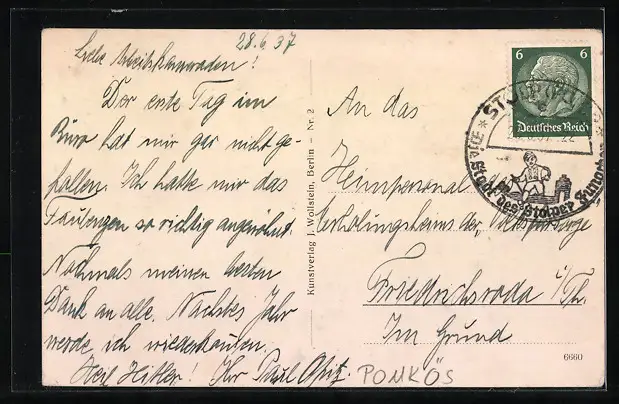 28.6.37
Liebe Arbeitskameraden!
Der erste Tag im
Büro hat mir gar nicht ge-
fallen. Ich hatte mir das
Faulenzen so richtig angewöhnt.
Nochmals meinen besten
Dank an alle. Nächstes Jahr
werde ich wiederkaufen.
Heil Hitler! Ihr Paul Opitz.
Kunstverlag J. Wollstein, Berlin – Nr. 2
6 6
Deutsches Reich
STOLP
Die Stadt des Stolper Jungchen
An das
Heimpersonal d
Erholungsheims der Volksfürsorge
Friedrichroda i/Th.
Im Grund
6660
POMKÖS